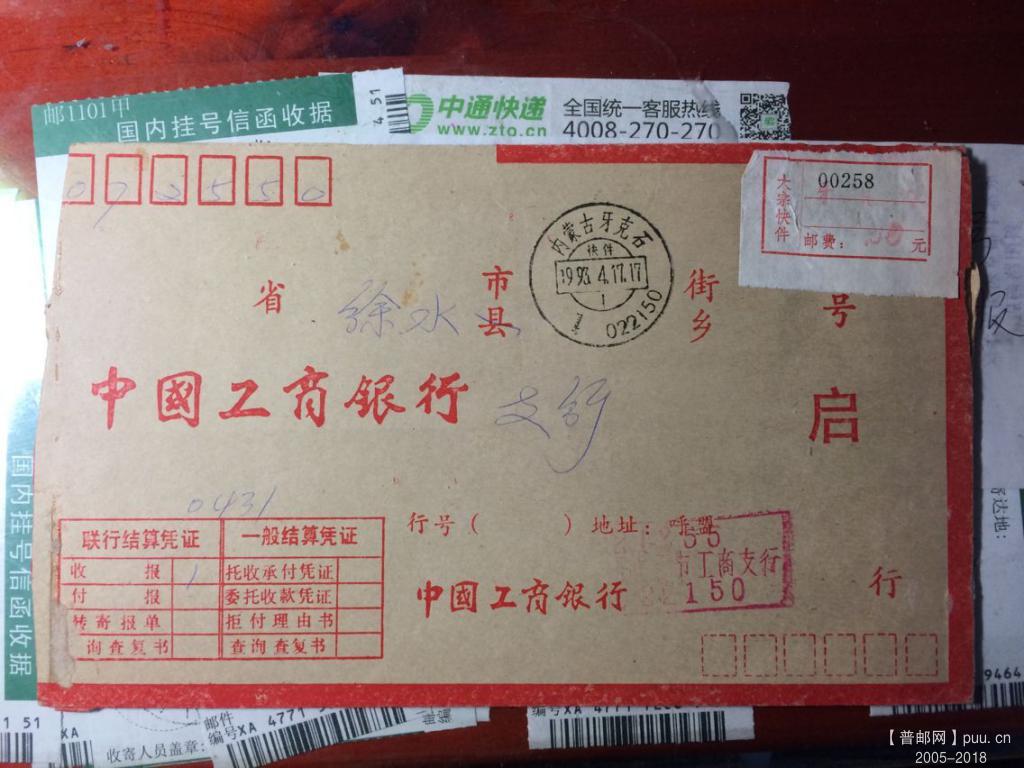 邮1101甲
国内挂号信函收据
4 51
中通快递
www.zto.cn
全国统一客服热线
4008-270-270
072550
大宗快件
00258
邮费： 元
内蒙古牙克石
快件
1993.4.17.17
022150
省 徐水 市县 街乡 号
中國工商銀行 支行 启
0431
联行结算凭证 一般结算凭证
收 报 1 托收承付凭证
付 报 委托收款凭证
转寄报单 拒付理由书
询查复书 查询查复书
行号（ ）地址：呼盟
55
市工商支行
150
中國工商銀行 行
国内挂号信函收据
1 51
XA
收寄人员盖章：
邮件
编号XA 4771
编号XA 4771
寄达地：
9464
【普邮网】puu.cn
2005-2018